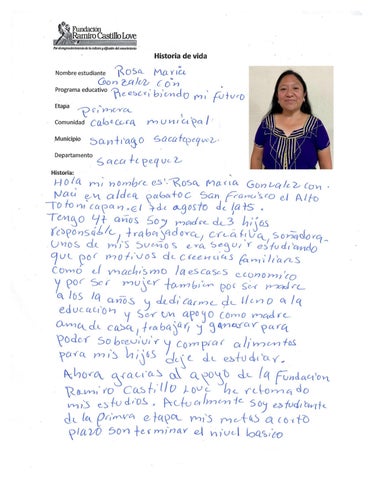 Fundación
Ramiro Castillo Love
Historia de vida
Nombre estudiante Rosa Maria
Gonzalez con
Programa educativo Reescribiendo mi futuro
Etapa primera
Comunidad cabecera municipal
Municipio Santiago Sacatepequez
Departamento
Sacatepequez
Historia:
Hola mi nombre es: Rosa Maria Gonzalez con
Naci en aldea pabatoc San Francisco el Alto
Totonicapan. El 7 de agosto de 1975.
Tengo 47 años soy madre de 3 hijos
responsable, trabajadora, creativa, soñadora-
unos de mis sueños era seguir estudiando
que por motivos de creencias familiares
como el machismo la escases economico
y por ser mujer tambien por ser madre
a los 19 años y dedicarme de lleno a la
educacion y ser un apoyo como madre
ama de casa, trabajar, y ganarar para
poder sobrevivir y comprar alimentos
para mis hijos deje de estudiar.
Ahora gracias al apoyo de la Fundacion
Ramiro Castillo Love he retomado
mis estudios. Actualmente soy estudiante
de la primera etapa mis metas a corto
plazo son terminar el nivel basico